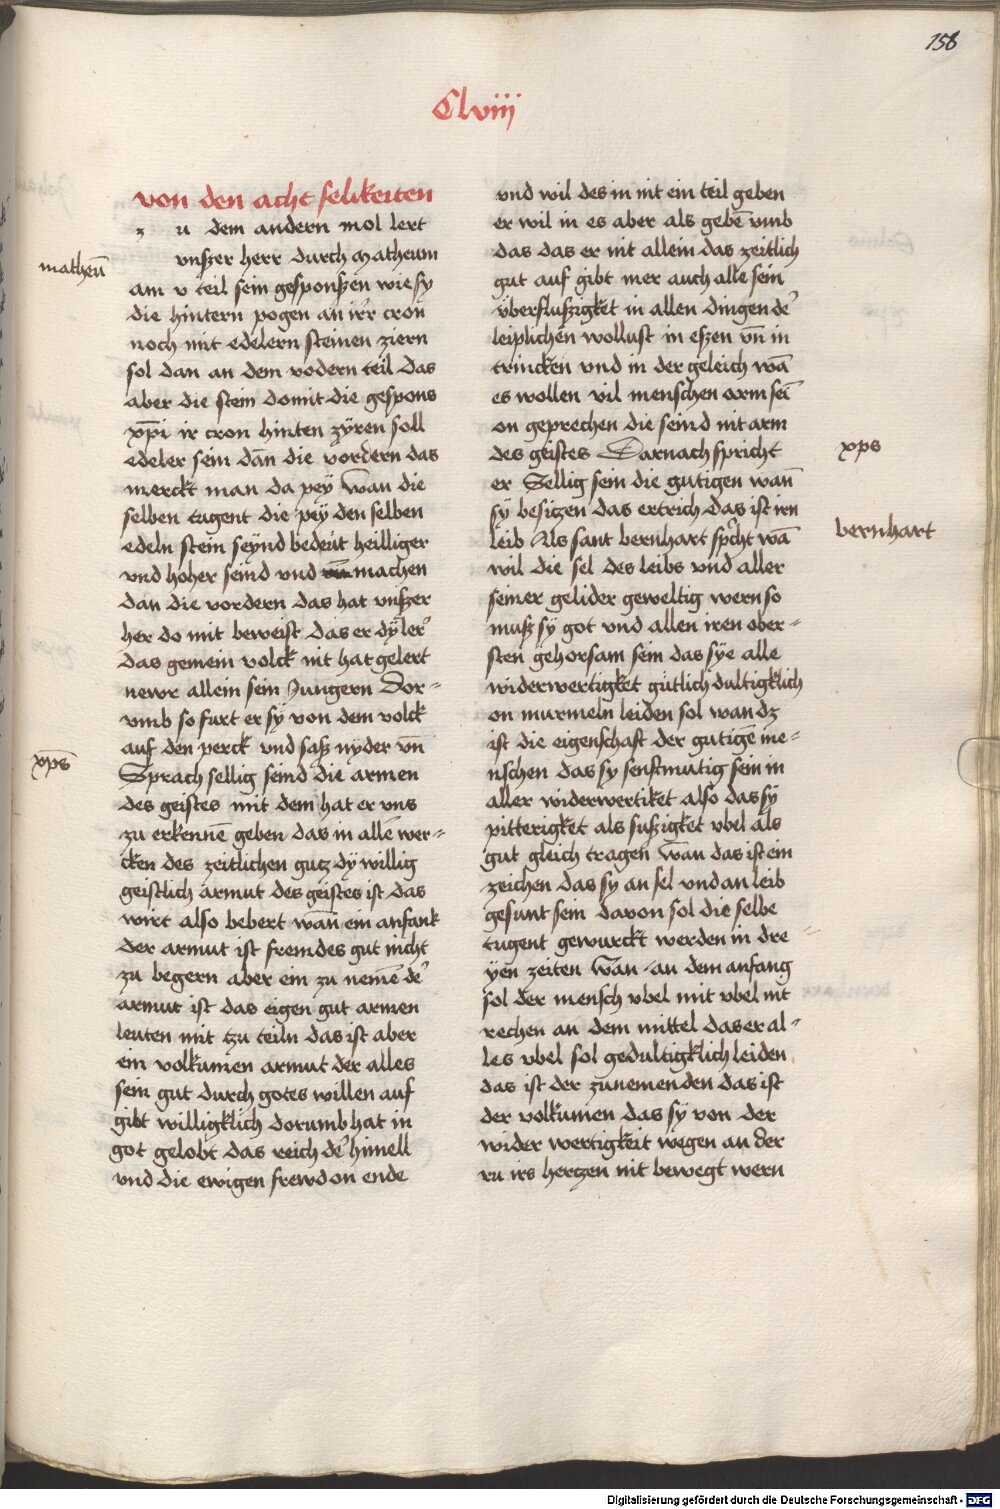 158
Clviii
von den acht selikeiten
z u dem andern mol lert
matheū
vnßer herr durch Matheum
am v teil sein gesponßen wie sy
die hintern pogen an irer cron
noch mit edelern steinen ziern
sol dan an dem vodern teil das
aber die stein domit die gespons
xp̄i ir cron hinten zÿren soll
edeler sein dān die vordern das
merckt man da peÿ wān die
selben tugent die peÿ den selben
edeln stein seÿnd bedeut heilliger
vnd hoher seind vnd machen
dan die vordern das hat vnßer
her do mit beweist das er dÿ ler
das gemein volck nit hat gelert
newr allein sein Jungern Dor⸗
vmb so furt er sÿ von dem volck
auf den perck vnd saß nyder vn̄
xp̄s
Sprach sellig seind die armen
des geistes mit dem hat er vns
zu erkennē geben das in allē wer⸗
cken des zeitlichen gutz dÿ willig
geistlich armut des geistes ist das
wirt also bebert wān ein anfank
der armut ist fremdes gut nicht
zu begern aber ein zu nemē de'
armut ist das eigen gut armen
leuten mit tzu teiln das ist aber
ein volkumen armut der alles
sein gut durch gotes willen auf
gibt willigklich dorumb hat in
got gelobt das reich de' himell
vnd die ewigen frewd on ende
vnd wil des in nit ein teil geben
er wil in es aber als gebē vmb
das das er nit allein das zeitlich
gut auf gibt mer auch alle sein
vberflußzigket in allen dingen de'
leiplichen wollust in eßen vn̄ in
trincken vnd in der geleich wā
es wollen vil menschen arm sei
on geprechen die seind nit arm
des geistes Darnach spricht
xps
er Sellig sein die gutigen wan̄
sÿ besitzen das ertrich das ist irn
bernhart
leib Als sant bernhart sp'cht wā
wil die sel des leibs vnd aller
seiner gelider geweltig wern so
muß sÿ got vnd allen iren ober⸗
sten gehorsam sein das sÿe alle
widerwertigket gutlich dultigklich
on murmeln leiden sol wan dz
ist die eigenschaft der gutigē me⸗
nschen das sy senftmutig sein in
aller widerwertiket also das sÿ
pitterigket als sußigket vbel als
gut gleich tragen wan das ist ein
zeichen das sy an sel vnd an leib
gesunt sein davon sol die selbe
tugent gewurckt werden in dre⸗
yen zeiten wan an dem anfang
sol der mensch vbel mit vbel nit
rechen an dem mittel das er al⸗
les vbel sol gedultigklich leiden
das ist der zunemenden das ist
der volkumen das sÿ von der
wider wertigkeit wegen an der
ru irs hertzen nit bewegt wern
Digitalisierung gefördert durch die Deutsche Forschungsgemeinschaft - DFG